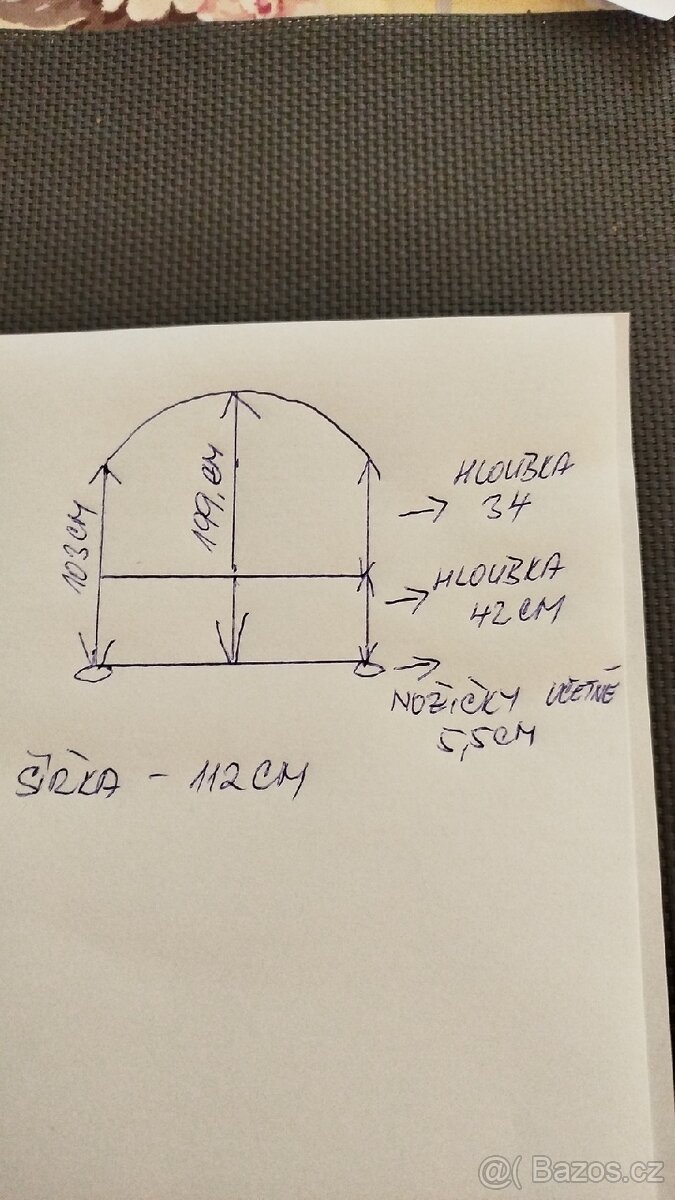 103CM
199,CM
HLOUBKA
34
HLOUBKA
42CM
NOŽIČKY VČETNĚ
5,5CM
ŠÍŘKA - 112CM
@( Bazos.cz